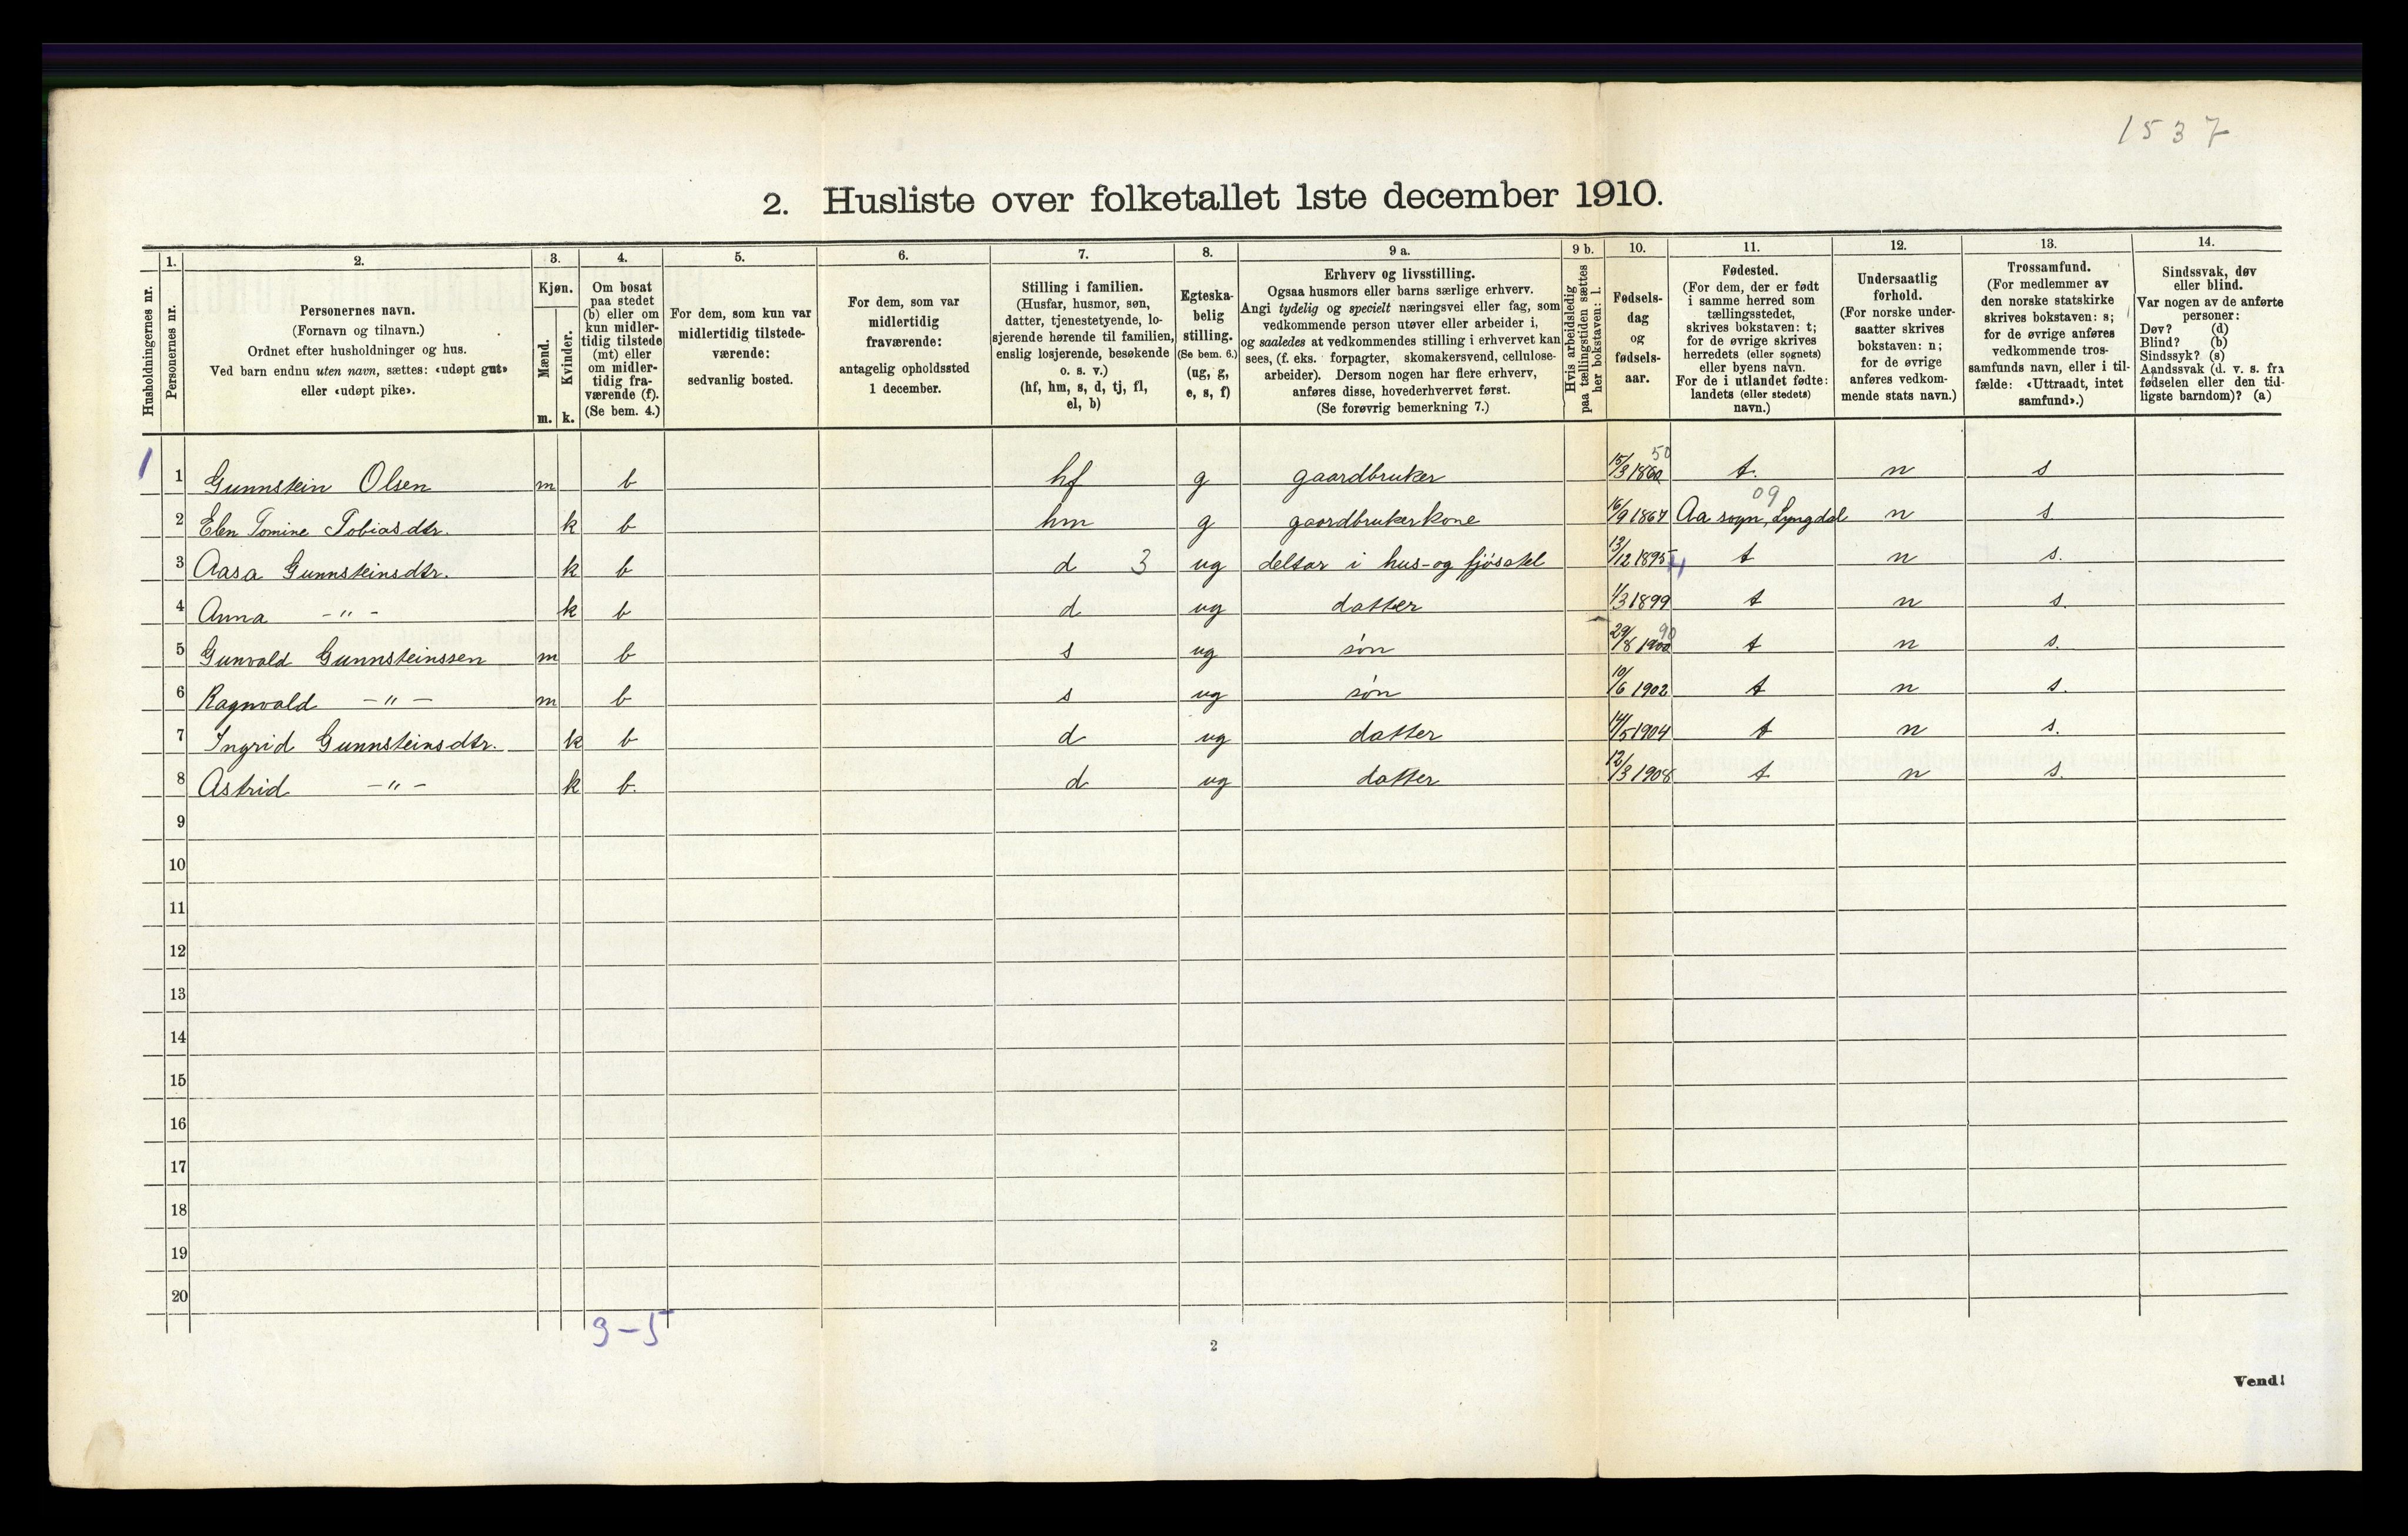 1537
2. Husliste over folketallet 1ste december 1910.
Husholdningernes nr.
1.
Personernes nr.
2.
Personernes navn.
(Fornavn og tilnavn.)
Ordnet efter husholdninger og hus.
Ved barn endnu uten navn, sættes: «udøpt gut»
eller «udøpt pike».
3.
Kjøn.
Mænd.
Kvinder.
m. k.
4.
Om bosat
paa stedet
(b) eller om
kun midler-
tidig tilstede
(mt) eller
om midler-
tidig fra-
værende (f).
(Se bem. 4.)
5.
For dem, som kun var
midlertidig tilstede-
værende:
sedvanlig bosted.
6.
For dem, som var
midlertidig
fraværende:
antagelig opholdssted
1 december.
7.
Stilling i familien.
(Husfar, husmor, søn,
datter, tjenestetyende, lo-
sjerende hørende til familien,
enslig losjerende, besøkende
o. s. v.)
(hf, hm, s, d, tj, fl,
el, b)
8.
Egteska-
belig
stilling.
(Se bem. 6.)
(ug, g,
e, s, f)
9 a.
Erhverv og livsstilling.
Ogsaa husmors eller barns særlige erhverv.
Angi tydelig og specielt næringsvei eller fag, som
vedkommende person utøver eller arbeider i,
og saaledes at vedkommendes stilling i erhvervet kan
sees, (f. eks. forpagter, skomakersvend, cellulose-
arbeider). Dersom nogen har flere erhverv,
anføres disse, hovederhvervet først.
(Se forøvrig bemerkning 7.)
9 b.
Hvis arbeidsledig
paa tællingstiden sættes
her bokstaven: l.
10.
Fødsels-
dag
og
fødsels-
aar.
11.
Fødested.
(For dem, der er født
i samme herred som
tællingsstedet,
skrives bokstaven: t;
for de øvrige skrives
herredets (eller sognets)
eller byens navn.
For de i utlandet fødte:
landets (eller stedets)
navn.)
12.
Undersaatlig
forhold.
(For norske under-
saatter skrives
bokstaven: n;
for de øvrige
anføres vedkom-
mende stats navn.)
13.
Trossamfund.
(For medlemmer av
den norske statskirke
skrives bokstaven: s;
for de øvrige anføres
vedkommende tros-
samfunds navn, eller i til-
fælde: «Uttraadt, intet
samfund».)
14.
Sindssvak, døv
eller blind.
Var nogen av de anførte
personer:
Døv? (d)
Blind? (b)
Sindssyk? (s)
Aandssvak (d. v. s. fra
fødselen eller den tid-
ligste barndom)? (a)
1 1 Gunnstein Olsen m b hf g gaardbruker 15/3 1860 50 t. n s
2 Elen Tomine Tobiasdtr. k b hm g gaardbrukerkone 16/9 1867 Aa sogn, Lyngdal 09 n s
3 Aasa Gunnsteinsdtr. k b d 3 ug deltar i hus- og fjøsstel 13/12 1895 4 t n s.
4 Anna -"- k b d ug datter 1/3 1899 t n s.
5 Gunvald Gunnsteinssen m b s ug søn 29/8 1900 90 t n s.
6 Ragnvald -"- m b s ug søn 10/6 1902 t n s.
7 Ingrid Gunnsteinsdtr. k b d ug datter 14/5 1904 t n s.
8 Astrid -"- k b. d ug datter 12/3 1908 t n s.
9
10
11
12
13
14
15
16
17
18
19
20
3-5
2
Vend!